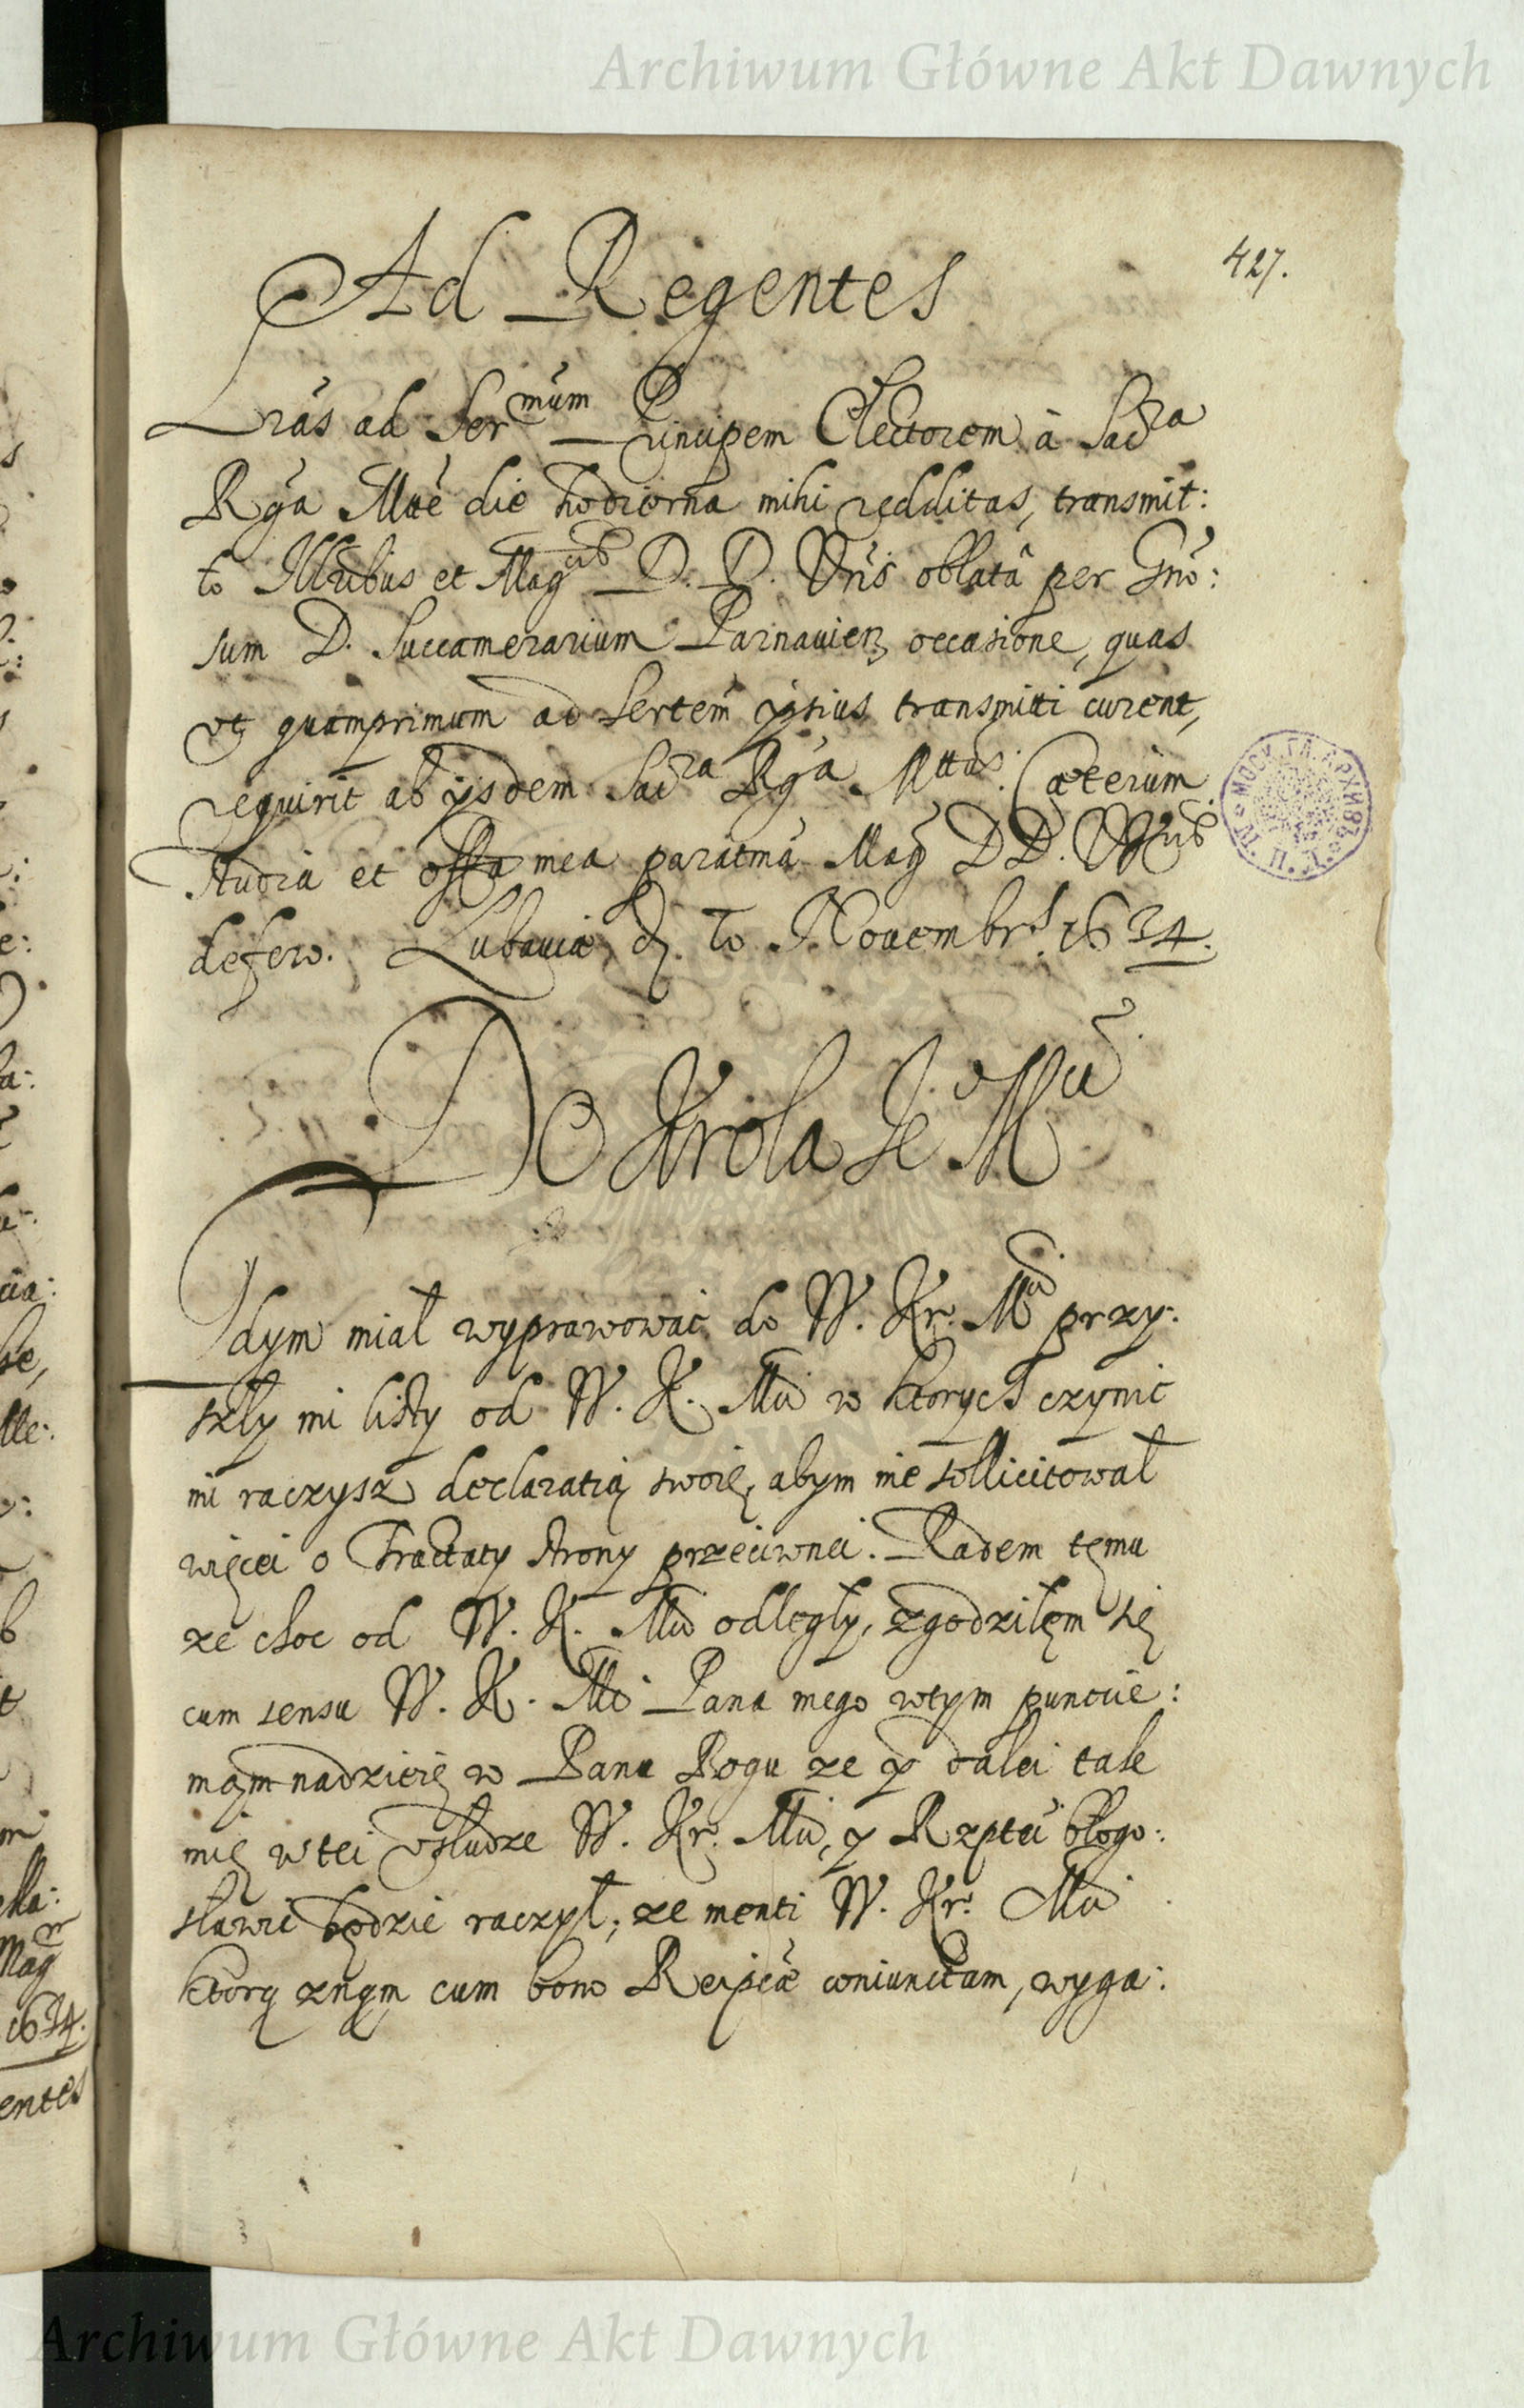 Archiwum Główne Akt Dawnych
427.
Ad Regentes
Lrãs ad Ser mũm Principem Electorem à Sac ra
Rga Mtte die hodierna mihi redditas, transmit:
to Illribus et Mag cis D. D. Vris oblatâ per Gno:
sum D. Succamerarium Parnavien occasione, quas
ut quamprimum ad Sertem ipsius transmitti curent,
requirit ab ijsdem Sac ra Rga Mttas. Cæterum
studia et offa mea paratma Mag DD. Vris
defero. Lubaviæ d. 10 Novembrs 1634.
Do Krola Je Mci
Gdym miał wyprawowac do W. Kr. Mci przy:
szły mi listy od W. K. Mci w ktorych czynic
mi raczysz declaratią swoię, abym nie sollicitował
więcei o Tractaty strony przeciwnei. Radem temu
ze choc od W. K. Mci odległy, zgodziłem się
cum sensu W. K. Mci Pana mego wtym puncie:
mam nadzieię w Panu Bogu ze y dalei tak
mię wtei usłudze W. Kr. Mci, y Rzptei błogo:
sławic będzie raczył, ze menti W. Kr. Mci
ktorą znam cum bono Reipcæ coniunctam, wyga:
Archiwum Główne Akt Dawnych